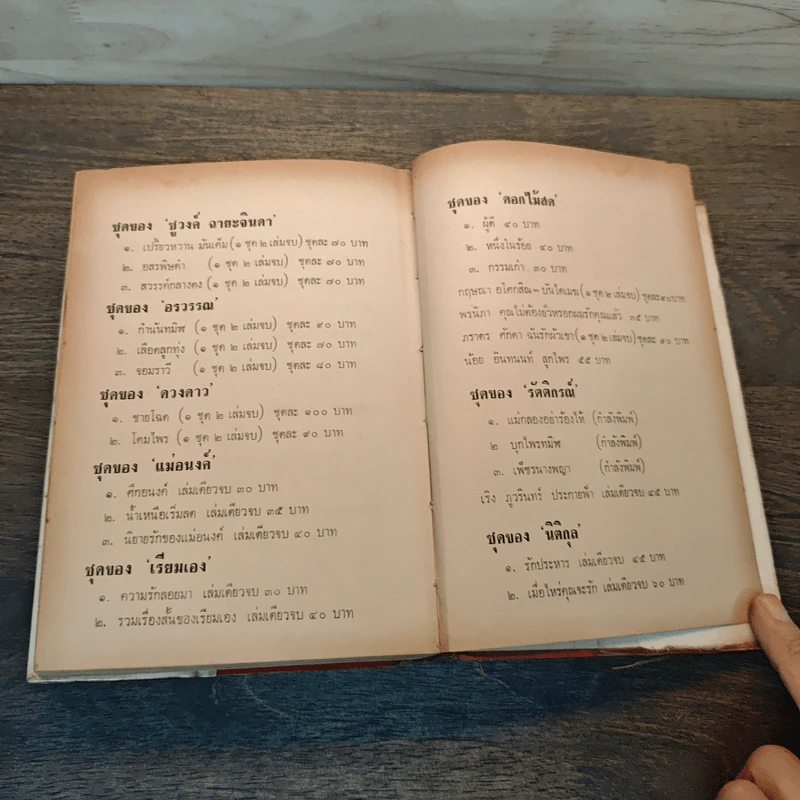 ชุดของ 'ชูวงศ์ ฉายะจินดา'
๑. เปรี้ยวหวาน มันเค็ม (๑ ชุด ๒ เล่มจบ) ชุดละ ๗๐ บาท
๒. อสรพิษดำ (๑ ชุด ๒ เล่มจบ) ชุดละ ๗๐ บาท
๓. สวรรค์กลางดง (๑ ชุด ๒ เล่มจบ) ชุดละ ๗๐ บาท
ชุดของ 'อรวรรณ'
๑. กำนันทมิฬ (๑ ชุด ๒ เล่มจบ) ชุดละ ๙๐ บาท
๒. เลือดลูกทุ่ง (๑ ชุด ๒ เล่มจบ) ชุดละ ๗๐ บาท
๓. จอมราวี (๑ ชุด ๒ เล่มจบ) ชุดละ ๘๐ บาท
ชุดของ 'ดวงดาว'
๑. ชายโฉด (๑ ชุด ๒ เล่มจบ) ชุดละ ๑๐๐ บาท
๒. โคมไพร (๑ ชุด ๒ เล่มจบ) ชุดละ ๙๐ บาท
ชุดของ 'แม่อนงค์'
๑. ศึกอนงค์ เล่มเดียวจบ ๓๐ บาท
๒. น้ำเหนือเริ่มลด เล่มเดียวจบ ๓๕ บาท
๓. นิยายรักของแม่อนงค์ เล่มเดียวจบ ๔๐ บาท
ชุดของ 'เรียมเอง'
๑. ความรักลอยมา เล่มเดียวจบ ๓๐ บาท
๒. รวมเรื่องสั้นของเรียมเอง เล่มเดียวจบ ๔๐ บาท
ชุดของ 'ดอกไม้สด'
๑. ผู้ดี ๔๐ บาท
๒. หนึ่งในร้อย ๔๐ บาท
๓. กรรมเก่า ๓๐ บาท
กฤษณา อโศกสิน–บันไดเมฆ (๑ ชุด ๒ เล่มจบ) ชุดละ ๙๐ บาท
พรนิภา คุณไม่ต้องยั่วหรอกผมรักคุณแล้ว ๓๕ บาท
ภราดร ศักดา ฉันรักผัวเขา (๑ ชุด ๒ เล่มจบ) ชุดละ ๙๐ บาท
น้อย อินทนนท์ ลูกไพร ๕๕ บาท
ชุดของ 'รัตติกรณ์'
๑. แม่กลองอย่าร้องไห้ (กำลังพิมพ์)
๒ บุกไพรทมิฬ (กำลังพิมพ์)
๓. เพ็ชรนางพญา (กำลังพิมพ์)
เริง ภูวรินทร์ ประกายฟ้า เล่มเดียวจบ ๔๕ บาท
ชุดของ 'นิติกุล'
๑. รักประหาร เล่มเดียวจบ ๔๕ บาท
๒. เมื่อไหร่คุณจะรัก เล่มเดียวจบ ๖๐ บาท